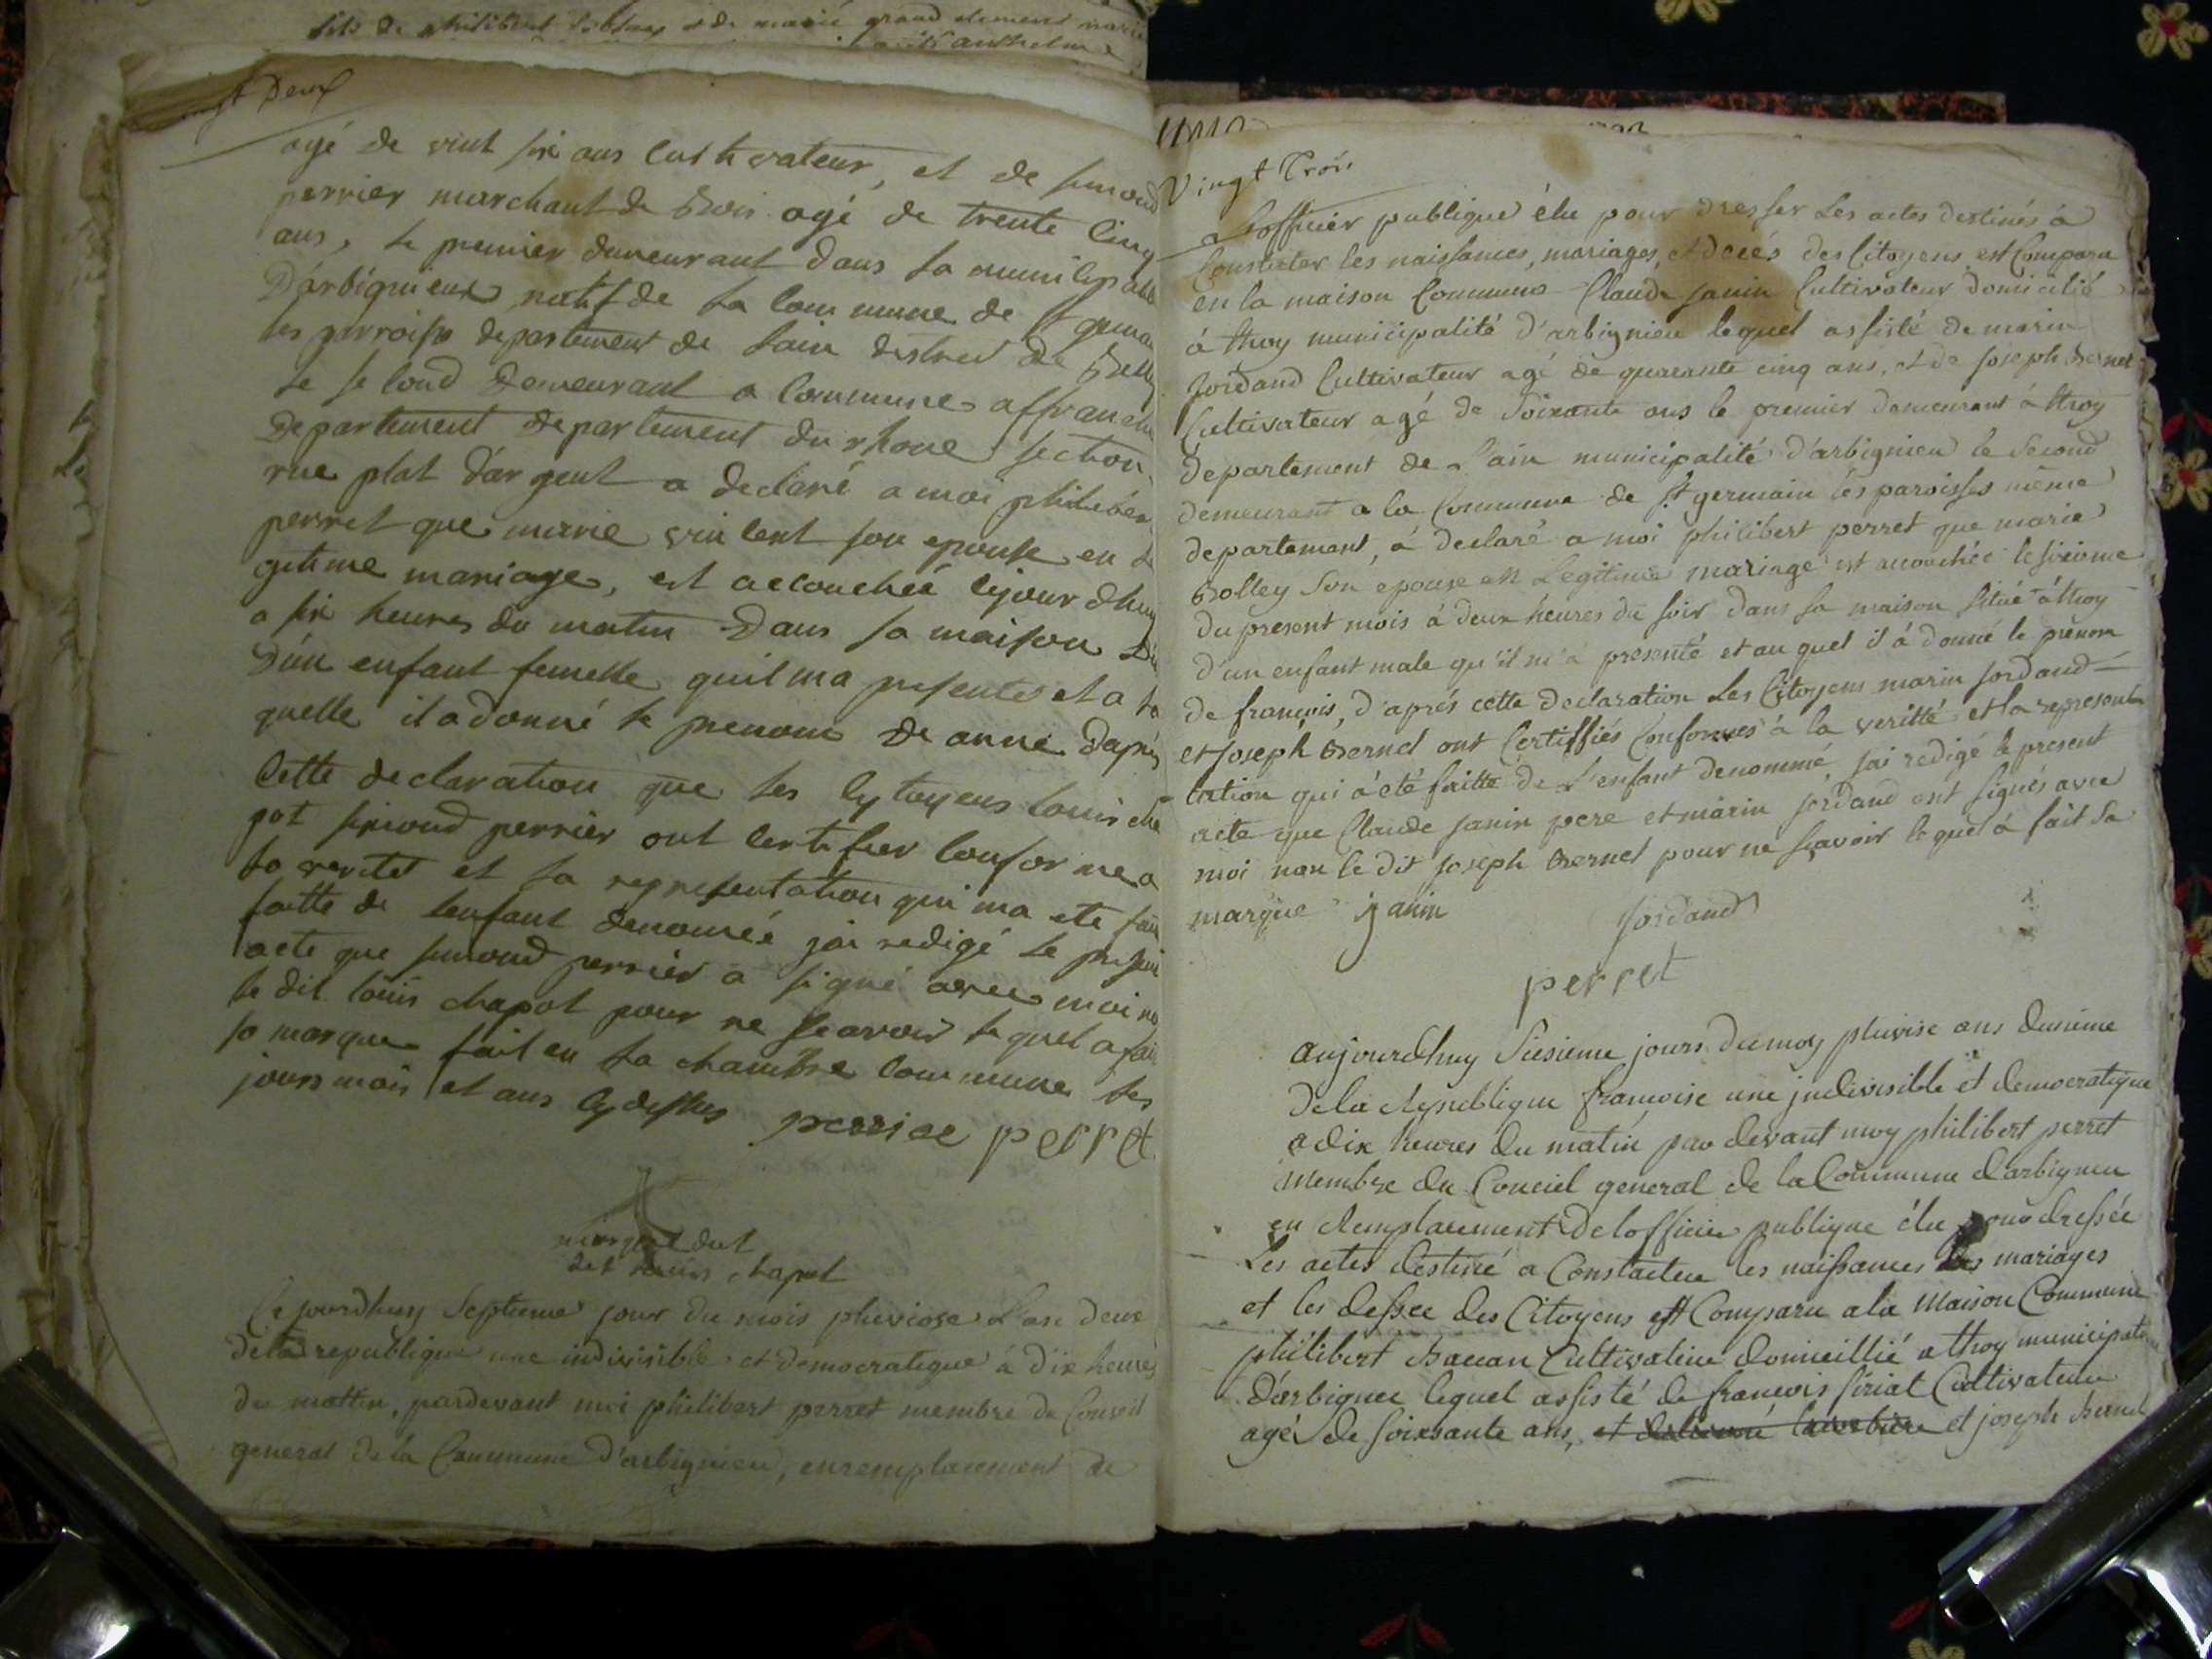 fils de philibert et de marie grand clement
anthelme
gt Deux
agé de vint six ans cultivateur, et de simond
perrier marchant de Bois agé de trente cinq
ans, le premier demeurant dans la municipali
D'arbignieux natif de la commune de St germa
les parroisse departement de lain destrict de Belley
le segond Demeurant a commune affranchi
Departement departement du rhone section
rue plat d'argent a declaré a moi philiber
perret que marie vincent son epouse en le
gitime mariage, est accouchée cejourdhuy
a six heures du matin Dans sa maison
D'un enfant femelle quil ma presenté et a la
quelle il a donné le prenom De anne Daprés
Cette declaration que les cytoyens louis cha
pot simond perrier ont certifier conforme a
la veritée et la representation qui ma ete
faitte de lenfant denomée jai redigé le presen
acte que simond perrier a signé avec moi no
le dit louis chapot pour ne scavoir lequel a fai
sa marque fait en la chambre commune les
jours mois et ans cydessus perrier perret
marque dut
dit louis chapot
Cejourdhuy septieme jour du mois pluviose L'an deux
de la republique une indivisible et democratique à dix heures
du mattin, pardevant moi philibert perret membre du Conseil
general de la Commune d'arbignieu, en remplacement de
Vingt trois
Lofficier publique élu pour dresser les actes destinés à
Constater les naissances, mariages, et decés des Citoyens, est Comparu
en la maison Commune Claude janin Cultivateur domicilié
à thoy municipalité d'arbignieu lequel assisté de marin
jordand Cultivateur agé de quarante cinq ans, et de joseph Bernet
Cultivateur agé de Soixante ans le premier demeurant à thoy
departement de l'ain municipalité d'arbignieu le second
demeurant a la Commune de St germain les paroisses même
departement, à declaré a moi philibert perret que marie
Bolley Son epouse en Legitime mariage est accouchée le sixieme
du present mois à deux heures du soir dans sa maison situé à thoy
d'un enfant male qu'il m'a presenté et au quel il à donné le prénom
de françois, d'aprés cette declaration Les Citoyens marin jordand
et joseph Bernet ont Certiffiés Conformes à la veritté et la represen
tation qui à été faitte de L'enfant denommé, jai redigé le present
acte que Claude janin pere et marin jordand ont signés avec
moi non le dit joseph Bernet pour ne sçavoir lequel à fait sa
marque janin jordand
perret
aujourdhuy Siesieme jours du moy pluvise ans dusieme
de la Republique francoise une jndivisible et democratique
a dix heures du matin par devant moy philibert perret
membre du Conciel general de la Commune darbigneu
en Remplacement de lofficier publique élu pour dressée
Les actes destiné a Constatere les naissances les mariages
et les dessee des Citoyens est Comparu a la Maison Commune
philibert Cultivateur domicillié a thoy municipal
darbigneu lequel assisté de francois siriat Cultivateur
agé de soixsante ans, et joseph Bernet